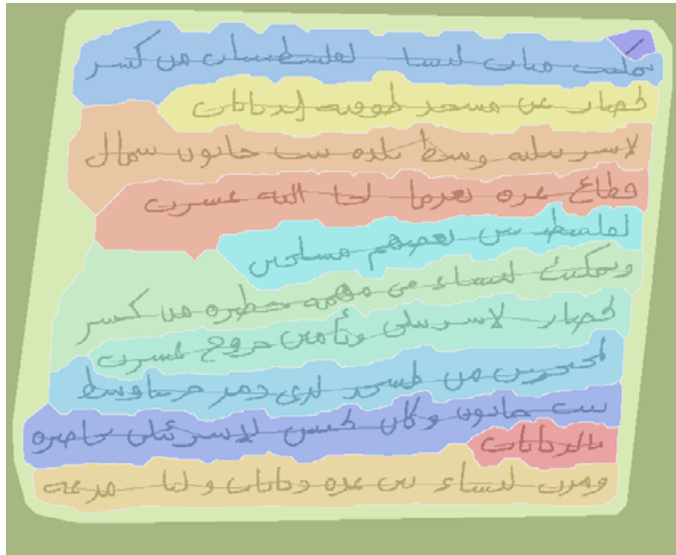 تمكنت مئات النساء الفلسطينيات من كسر
الحصار عن مسجد طوقته الدبابات
الإسرائيلية وسط بلدة بيت حانون شمال
قطاع غزة بعدما لجأ إليه عشرات
الفلسطينيين بعضهم مسلحين
وتمكنت النساء من مهمة خطيرة من كسر
الحصار الإسرائيلي وتأمين خروج عشرات
المحاصرين من المسجد الذي دمر وسط
بيت حانون وكان الجيش الإسرائيلي يحاصره
بالدبابات
ومرت النساء بين عدة دبابات مدرعة